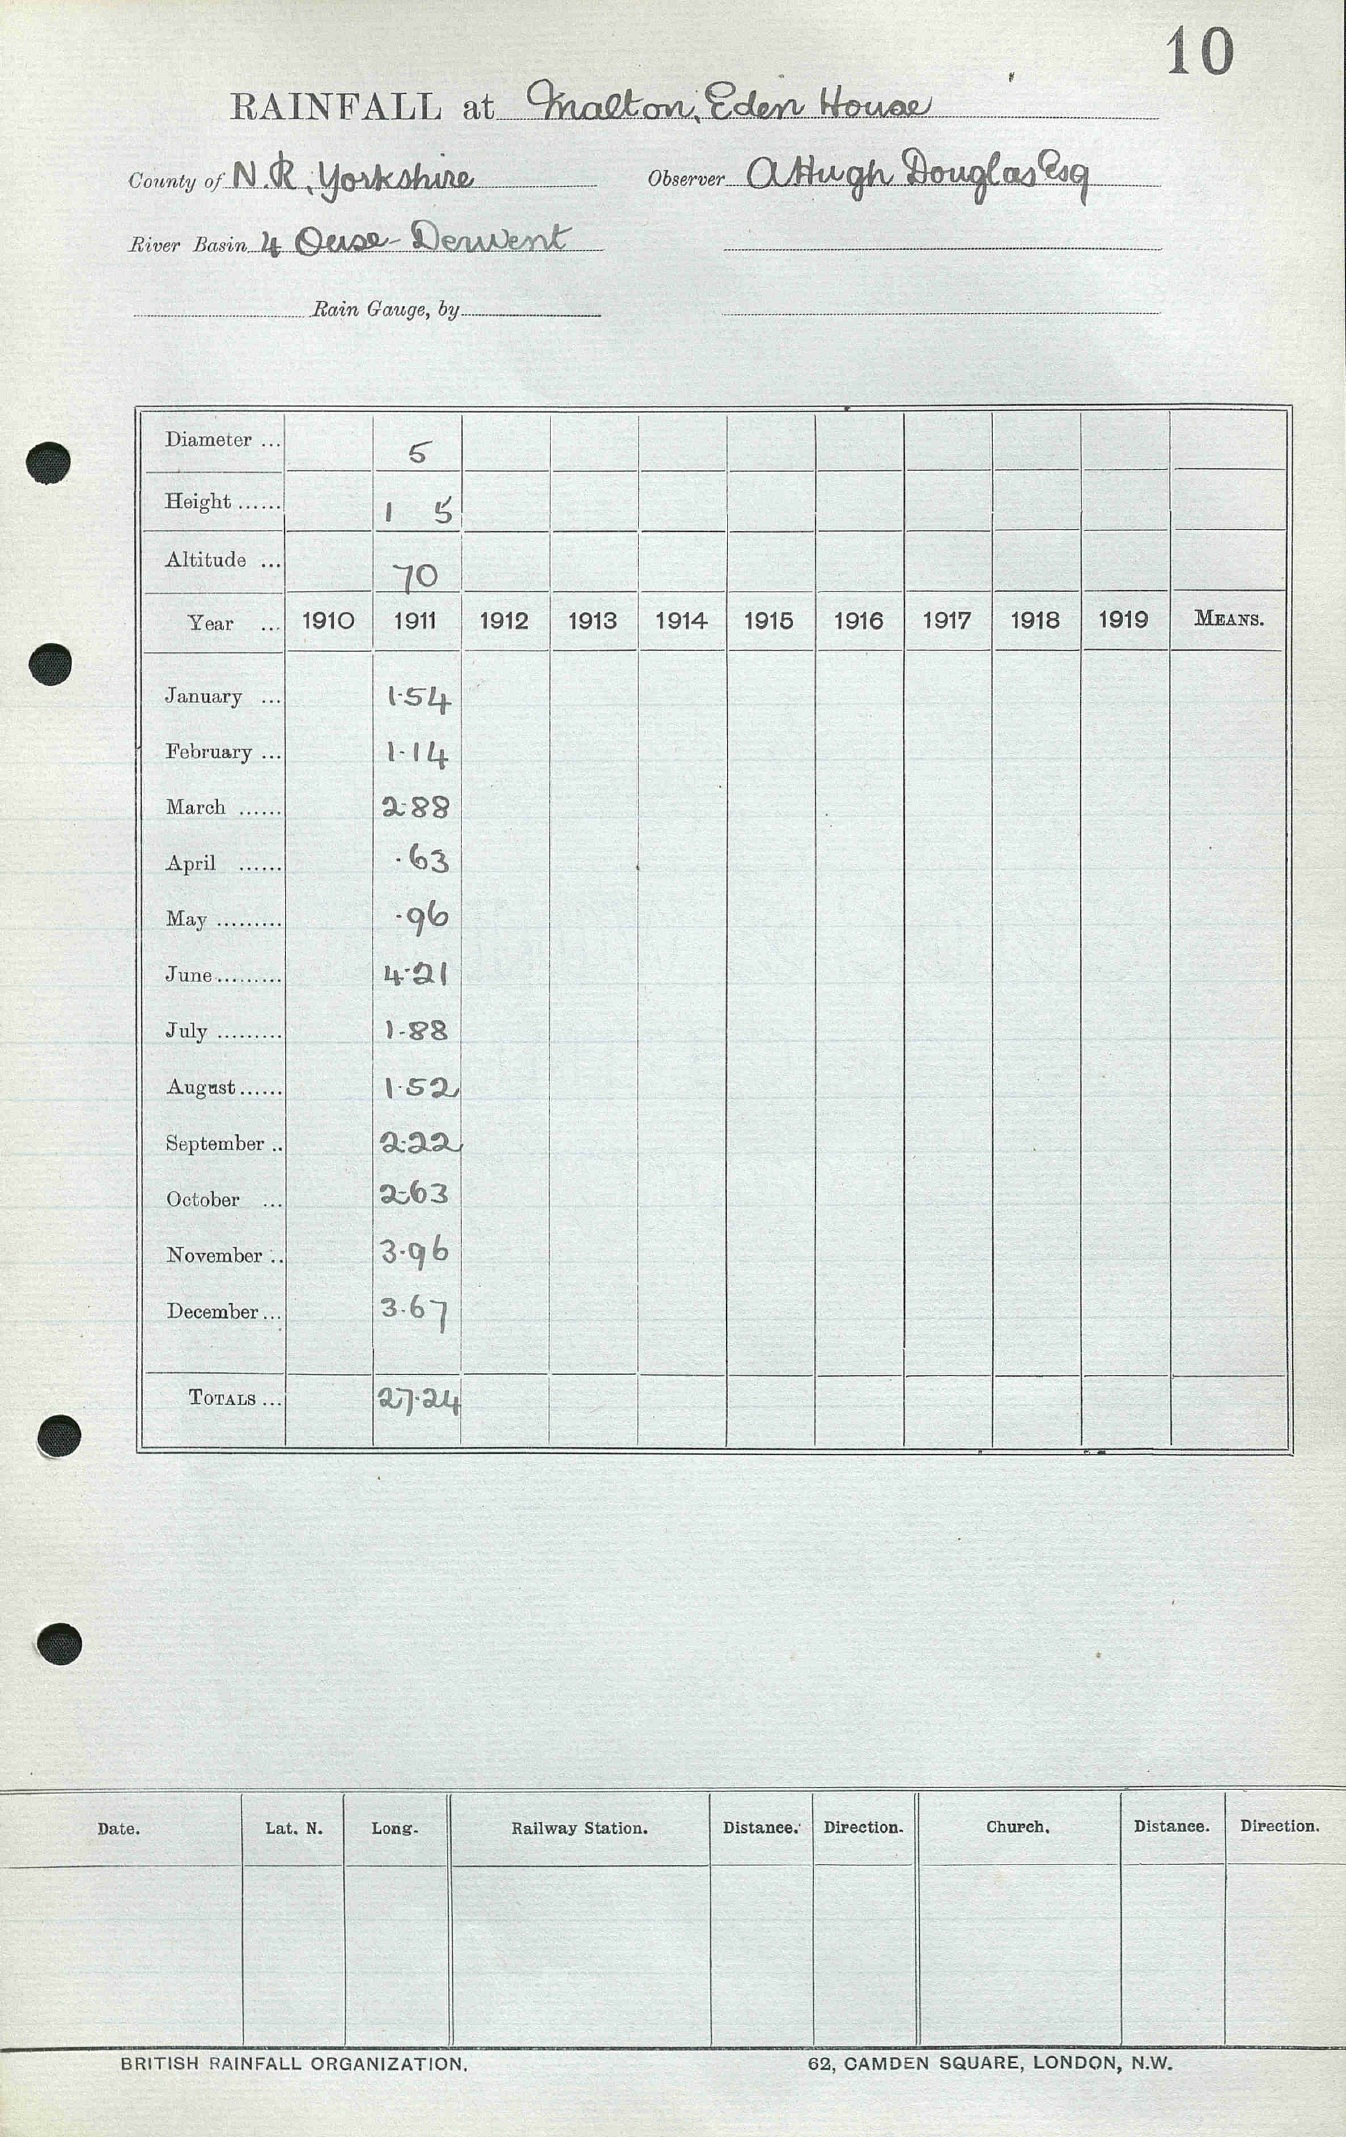 10
RAINFALL at Malton, Eden House
County of N.R. Yorkshire Observer A Hugh Douglas Esq
River Basin 4 Ouse-Derwent
Rain Gauge, by
Diameter ... 5
Height ...... 1 5
Altitude ... 70
Year ... 1910 1911 1912 1913 1914 1915 1916 1917 1918 1919 MEANS.
January ... 1.54
February ... 1.14
March ...... 2.88
April ...... .63
May ......... .96
June ......... 4.21
July ......... 1.88
August ...... 1.52
September .. 2.22
October ... 2.63
November .. 3.96
December ... 3.67
TOTALS ... 27.24
Date. Lat. N. Long. Railway Station. Distance. Direction. Church. Distance. Direction.
BRITISH RAINFALL ORGANIZATION. 62, CAMDEN SQUARE, LONDON, N.W.